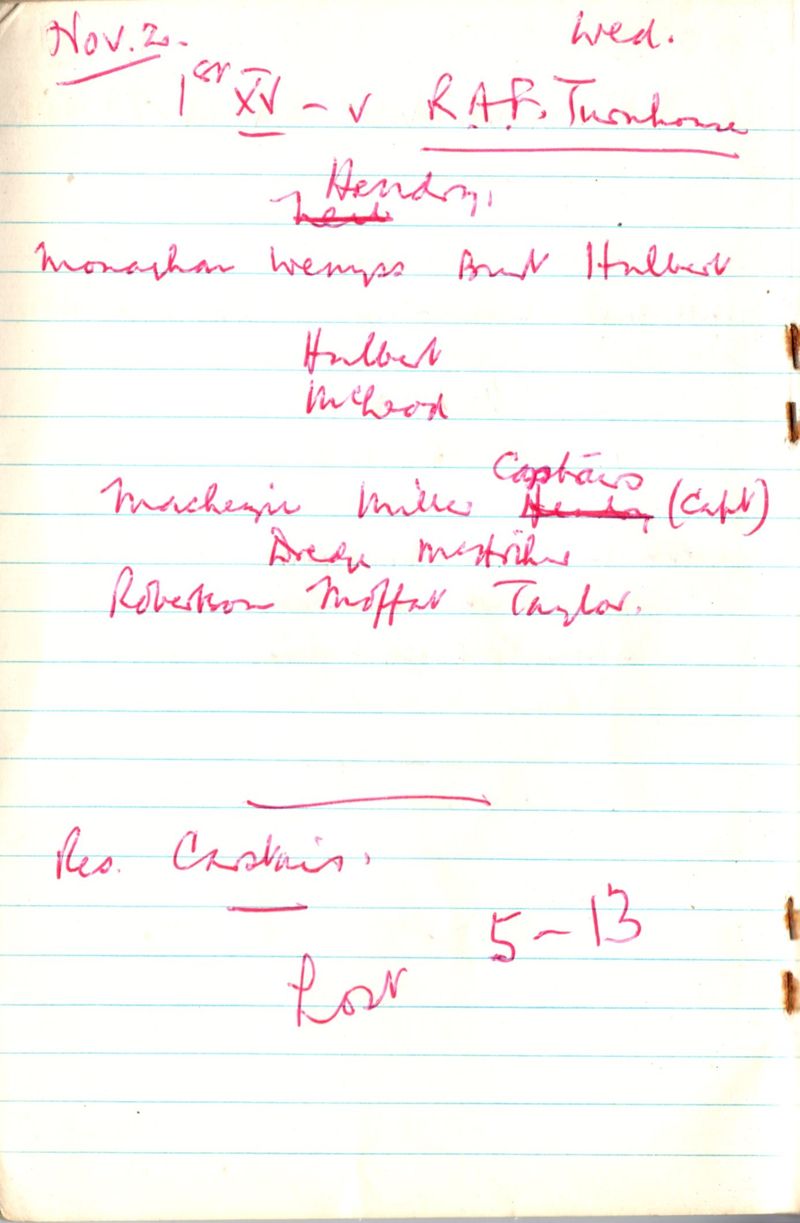 Nov. 2. Wed.
1st XV – v R.A.F. Turnhouse
Hendry.
Monaghan Wemyss Burt Hulbert
Hulbert
McLeod
Mackenzie Miller Carstairs (Capt)
Dredge
Robertson Moffat Taylor.
Res. Carstairs.
5–13
Lost